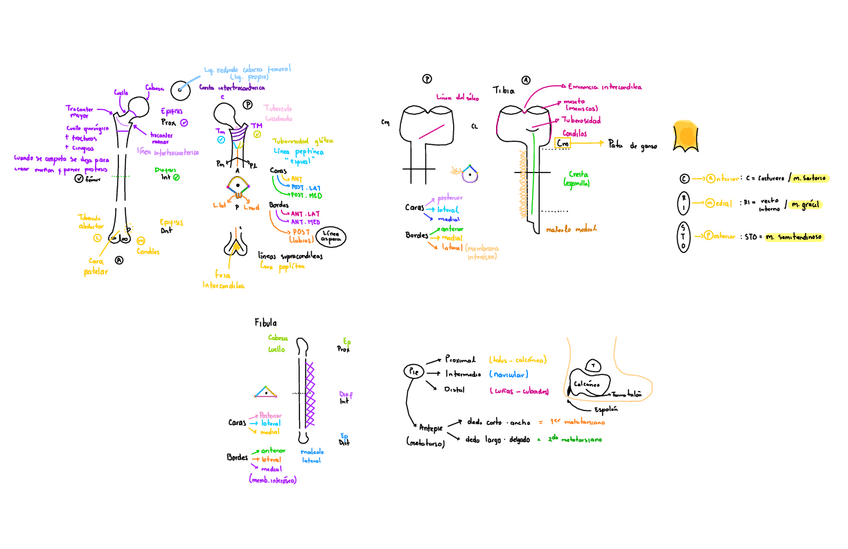 Lig. redondo cabeza femoral
(lig. propio)
Cabeza
Cuello
Cresta intertrocantérica
Trocanter
mayor
Epífisis
Prox
Cuello quirúrgico
trocanter
menor
línea intertrocanterica
Cuando se amputa se deja para
crear muñon y poner protesis
Fémur
Diáfisis
Int
Tubérculo
abductor
Epífisis
Dist
Condilos
Cara
patelar
A
P
Tubérculo
cuadrado
Tm
TM
Tuberosidad glútea
línea pectínea
"espiral"
Pm
PL
A
P
L.lat
L.med
Caras
ANT
POST. LAT
POST. MED
Bordes
ANT. LAT
ANT. MED
POST
(labios)
Línea
aspera
líneas supracondileas
Cara poplítea
Fosa
Intercondilea
P
A
Tibia
Línea del sóleo
Cm
CL
Eminencia intercondilea
meseta
(meniscos)
Tuberosidad
Condilos
Cm
Pata de ganso
Cresta
(espinilla)
Caras
posterior
lateral
medial
Bordes
anterior
medial
lateral (membrana
interósea)
maleolo medial
C
Anterior : C = Costurero / m. sartorio
R
I
medial : RI = recto
interno / m. grácil
S
T
O
Posterior : STO = m. semitendinoso
Fíbula
Cabeza
Cuello
Ep
Prox
Diaf
Int
Caras
Posterior
lateral
medial
Ep
Dist
Bordes
anterior
lateral
medial
(memb. interósea)
maleolo
lateral
Pie
Proximal (talus - calcáneo)
Intermedio (navicular)
Distal (cuñas - cuboides)
Antepie
(metatarso)
dedo corto - ancho = 1er metatarsiano
dedo largo - delgado = 2do metatarsiano
T
Calcáneo
Espolón